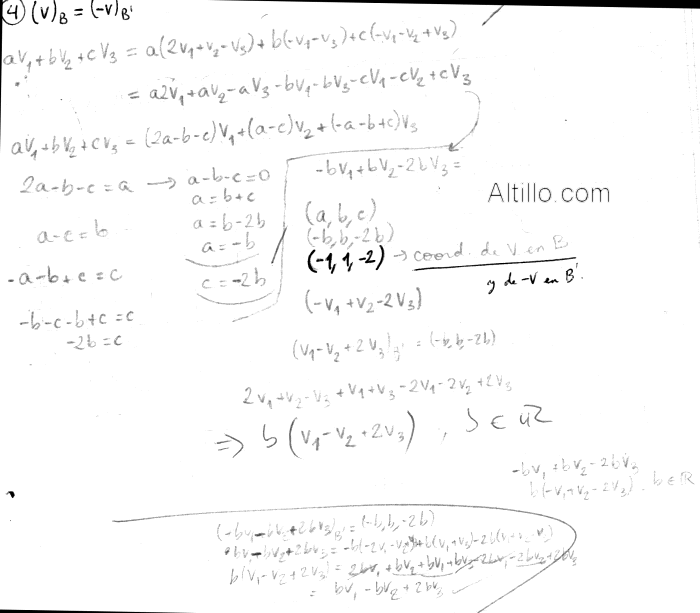 ④ (v)_B = (-v)_B'
av₁ + bv₂ + cv₃ = a(2v₁+v₂-v₃) + b(-v₁-v₃) + c(-v₁-v₂+v₃)
= a2v₁ + av₂ - av₃ - bv₁ - bv₃ - cv₁ - cv₂ + cv₃
av₁ + bv₂ + cv₃ = (2a-b-c)v₁ + (a-c)v₂ + (-a-b+c)v₃
2a-b-c = a → a-b-c=0
a=b+c
a = b-2b
a = -b
c = -2b
a-c = b
-a-b+c = c
-b-c-b+c = c
-2b = c
-bv₁+bv₂-2bv₃ =
Altillo.com
(a,b,c)
(-b,b,-2b)
(-1,1,-2) → coord. de V en B
y de -V en B'.
(-v₁+v₂-2v₃)
(v₁-v₂+2v₃)_B' = (-b,b,-2b)
2v₁+v₂-v₃+v₁+v₃-2v₁-2v₂+2v₃
⇒ b(v₁-v₂+2v₃), b∈ℝ
-bv₁+bv₂-2bv₃
b(-v₁+v₂-2v₃) b∈ℝ
(-bv₁-bv₂+2bv₃)_B' = (-b,b,-2b)
b(v₁-v₂+2v₃) = 2bv₁+bv₂+bv₁+bv₃-2bv₁-2bv₂+2bv₃
= bv₁-bv₂+2bv₃